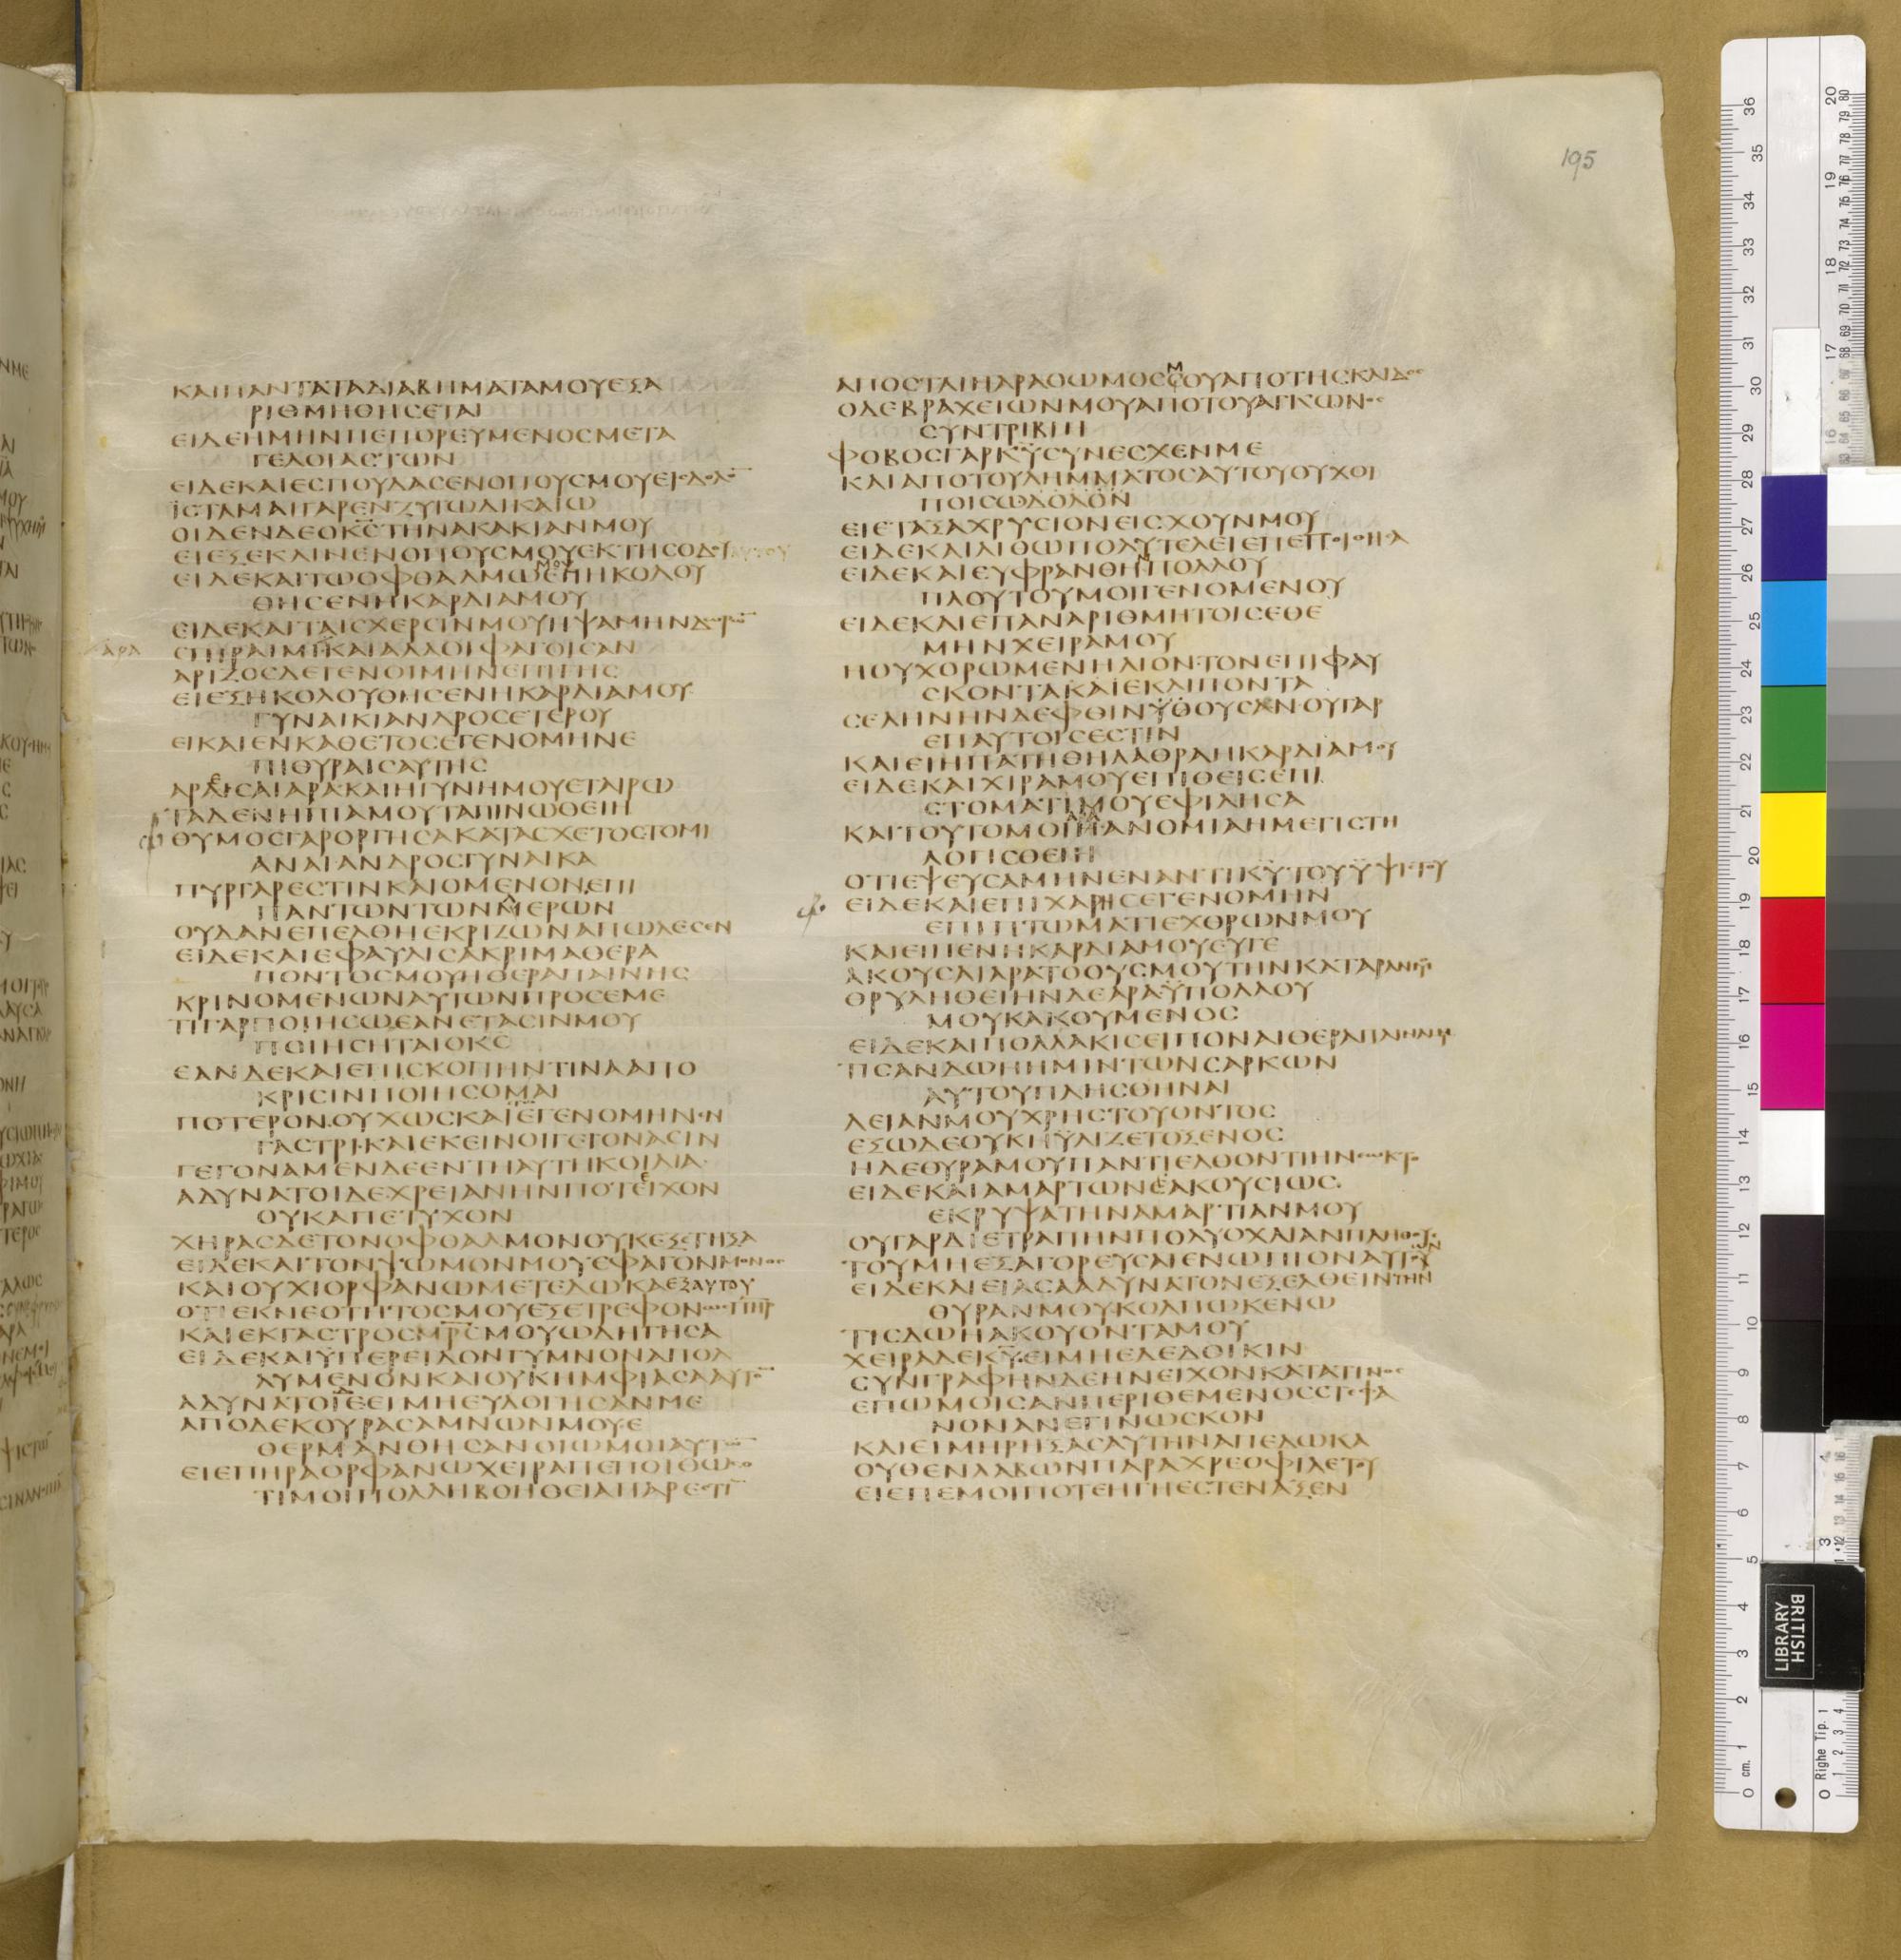 195
ΚΑΙΠΑΝΤΑΤΑΔΙΑΒΗΜΑΤΑΜΟΥΕΞΑ
ΡΙΘΜΗΘΗCΕΤΑΙ
ΕΙΔΕΗΜΗΝΠΕΠΟΡΕΥΜΕΝΟCΜΕΤΑ
ΓΕΛΟΙΑCΤΩΝ
ΕΙΔΕΚΑΙΕCΠΟΥΔΑCΕΝΟΠΟΥCΜΟΥΕΙ
ΙCΤΑΜΑΙΓΑΡΕΝΖΥΓΩΔΙΚΑΙΩ
ΟΙΔΕΝΔΕΟΚCΤΗΝΑΚΑΚΙΑΝΜΟΥ
ΕΙΕΞΕΚΛΙΝΕΝΟΠΟΥCΜΟΥΕΚΤΗCΟΔΟΥ
ΕΙΔΕΚΑΙΤΩΟΦΘΑΛΜΩΜΟΥΕΠΗΚΟΛΟΥ
ΘΗCΕΝΗΚΑΡΔΙΑΜΟΥ
ΕΙΔΕΚΑΙΤΑΙCΧΕΡCΙΝΜΟΥΗΨΑΜΗΝΔΩΡΩ
CΠΙΡΑΙΜΙΚΑΙΑΛΛΟΙΦΑΓΟΙCΑΝ
ΑΡΙΖΟCΔΕΓΕΝΟΙΜΗΝΕΠΙΓΗC
ΕΙΕΞΗΚΟΛΟΥΘΗCΕΝΗΚΑΡΔΙΑΜΟΥ
ΓΥΝΑΙΚΙΑΝΔΡΟCΕΤΕΡΟΥ
ΕΙΚΑΙΕΝΚΑΘΕΤΟCΕΓΕΝΟΜΗΝΕ
ΠΙΘΥΡΑΙCΑΥΤΗC
ΑΡΕCΑΙΑΡΑΚΑΙΗΓΥΝΗΜΟΥΕΤΑΙΡΩ
ΤΑΔΕΝΗΠΙΑΜΟΥΤΑΠΙΝΩΘΕΙΗ
ΘΥΜΟCΓΑΡΟΡΓΗCΑΚΑΤΑCΧΕΤΟCΤΟΜΙ
ΑΝΑΙΑΝΔΡΟCΓΥΝΑΙΚΑ
ΠΥΡΓΑΡΕCΤΙΝΚΑΙΟΜΕΝΟΝΕΠΙ
ΠΑΝΤΩΝΤΩΝΜΕΡΩΝ
ΟΥΔΑΝΕΠΕΛΘΗΕΚΡΙΖΩΝΑΠΩΛΕCΕΝ
ΕΙΔΕΚΑΙΕΦΑΥΛΙCΑΚΡΙΜΑΘΕΡΑ
ΠΟΝΤΟCΜΟΥΗΘΕΡΑΠΑΙΝΗC
ΚΡΙΝΟΜΕΝΩΝΑΥΤΩΝΠΡΟCΕΜΕ
ΤΙΓΑΡΠΟΙΗCΩΕΑΝΕΤΑCΙΝΜΟΥ
ΠΟΙΗCΗΤΑΙΟΚC
ΕΑΝΔΕΚΑΙΕΠΙCΚΟΠΗΝΤΙΝΑΑΠΟ
ΚΡΙCΙΝΠΟΙΗCΟΜΑΙ
ΠΟΤΕΡΟΝΟΥΧΩCΚΑΙΕΓΕΝΟΜΗΝΕΝ
ΓΑCΤΡΙΚΑΙΕΚΕΙΝΟΙΓΕΓΟΝΑCΙΝ
ΓΕΓΟΝΑΜΕΝΔΕΕΝΤΗΑΥΤΗΚΟΙΛΙΑ
ΑΔΥΝΑΤΟΙΔΕΧΡΕΙΑΝΗΝΠΟΤΕΙΧΟΝ
ΟΥΚΑΠΕΤΥΧΟΝ
ΧΗΡΑCΔΕΤΟΝΟΦΘΑΛΜΟΝΟΥΚΕΞΕΤΗΞΑ
ΕΙΔΕΚΑΙΤΟΝΨΩΜΟΝΜΟΥΕΦΑΓΟΝΜΟΝΟC
ΚΑΙΟΥΧΙΟΡΦΑΝΩΜΕΤΕΔΩΚΑΕΞΑΥΤΟΥ
ΟΤΙΕΚΝΕΟΤΗΤΟCΜΟΥΕΞΕΤΡΕΦΟΝΩCΠΗΡ
ΚΑΙΕΚΓΑCΤΡΟCΜΡCΜΟΥΩΔΗΓΗCΑ
ΕΙΔΕΚΑΙΥΠΕΡΕΙΔΟΝΓΥΜΝΟΝΑΠΟΛ
ΛΥΜΕΝΟΝΚΑΙΟΥΚΗΜΦΙΑCΑΑΥΤΟΝ
ΑΔΥΝΑΤΟΙΔΕΕΙΜΗΕΥΛΟΓΗCΑΝΜΕ
ΑΠΟΔΕΚΟΥΡΑCΑΜΝΩΝΜΟΥΕ
ΘΕΡΜΑΝΘΗCΑΝΟΙΩΜΟΙΑΥΤΩΝ
ΕΙΕΠΗΡΑΟΡΦΑΝΩΧΕΙΡΑΠΕΠΟΙΘΩC
ΤΙΜΟΙΠΟΛΛΗΒΟΗΘΕΙΑΠΑΡΕCΤΙ
ΑΠΟCΤΑΙΗΑΡΑΟΩΜΟCΜΟΥΑΠΟΤΗCΚΛΙΔΟC
ΟΔΕΒΡΑΧΕΙΩΝΜΟΥΑΠΟΤΟΥΑΓΚΩΝΟC
CΥΝΤΡΙΒΙΗ
ΦΟΒΟCΓΑΡΚΥCΥΝΕCΧΕΝΜΕ
ΚΑΙΑΠΟΤΟΥΛΗΜΜΑΤΟCΑΥΤΟΥΟΥΧΟΙ
ΕΙΕΤΑΞΑΧΡΥCΙΟΝΕΙCΧΟΥΝΜΟΥ
ΕΙΔΕΚΑΙΛΙΘΩΠΟΛΥΤΕΛΕΙΕΠΕΠΟΙΘΗCΑ
ΕΙΔΕΚΑΙΕΥΦΡΑΝΘΗΝΠΟΛΛΟΥ
ΠΛΟΥΤΟΥΜΟΙΓΕΝΟΜΕΝΟΥ
ΕΙΔΕΚΑΙΕΠΑΝΑΡΙΘΜΗΤΟΙCΕΘΕ
ΜΗΝΧΕΙΡΑΜΟΥ
ΗΟΥΧΟΡΩΜΕΝΗΛΙΟΝΤΟΝΕΠΙΦΑΥ
CΚΟΝΤΑΚΑΙΕΚΛΙΠΟΝΤΑ
CΕΛΗΝΗΝΔΕΦΘΙΝΥΘΟΥCΑΝΟΥΓΑΡ
ΕΠΑΥΤΟΙCΕCΤΙΝ
ΚΑΙΕΙΗΠΑΤΗΘΗΛΑΘΡΑΗΚΑΡΔΙΑΜΟΥ
ΕΙΔΕΚΑΙΧΙΡΑΜΟΥΕΠΙΘΕΙCΕΠΙ
CΤΟΜΑΤΙΜΟΥΕΦΙΛΗCΑ
ΚΑΙΤΟΥΤΟΜΟΙΑΝΟΜΙΑΗΜΕΓΙCΤΗ
ΛΟΓΙCΘΕΙΗ
ΟΤΙΕΨΕΥCΑΜΗΝΕΝΑΝΤΙΚΥΤΟΥΥΨΙCΤΟΥ
ΕΙΔΕΚΑΙΕΠΙΧΑΡΗCΕΓΕΝΟΜΗΝ
ΕΠΙΠΤΩΜΑΤΙΕΧΘΡΩΝΜΟΥ
ΚΑΙΕΙΠΕΝΗΚΑΡΔΙΑΜΟΥΕΥΓΕ
ΑΚΟΥCΑΙΑΡΑΤΟΟΥCΜΟΥΤΗΝΚΑΤΑΡΑΝΜΟΥ
ΘΡΥΛΗΘΕΙΗΝΔΕΑΡΑΫΠΟΛΑΟΥ
ΜΟΥΚΑΚΟΥΜΕΝΟC
ΕΙΔΕΚΑΙΠΟΛΛΑΚΙCΕΙΠΟΝΑΙΘΕΡΑΠΑΙΝΑΙΜΟΥ
ΤΙCΑΝΔΩΗΗΜΙΝΤΩΝCΑΡΚΩΝ
ΑΥΤΟΥΠΛΗCΘΗΝΑΙ
ΛΕΙΑΝΜΟΥΧΡΗCΤΟΥΟΝΤΟC
ΕΞΩΔΕΟΥΚΗΥΛΙΖΕΤΟΞΕΝΟC
ΗΔΕΘΥΡΑΜΟΥΠΑΝΤΙΕΛΘΟΝΤΙΗΝ
ΕΙΔΕΚΑΙΑΜΑΡΤΩΝΑΚΟΥCΙΩC
ΕΚΡΥΨΑΤΗΝΑΜΑΡΤΙΑΝΜΟΥ
ΟΥΓΑΡΔΙΕΤΡΑΠΗΝΠΟΛΥΟΧΛΙΑΝΠΛΗΘΟΥC
ΤΟΥΜΗΕΞΑΓΟΡΕΥCΑΙΕΝΩΠΙΟΝΑΥΤΩΝ
ΕΙΔΕΚΑΙΕΙΑCΑΑΔΥΝΑΤΟΝΕΞΕΛΘΕΙΝΤΗΝ
ΘΥΡΑΝΜΟΥΚΟΛΠΩΚΕΝΩ
ΤΙCΔΩΗΑΚΟΥΟΝΤΑΜΟΥ
ΧΕΙΡΑΔΕΚΥΕΙΜΗΕΔΕΔΟΙΚΙΝ
CΥΝΓΡΑΦΗΝΔΕΗΝΕΙΧΟΝΚΑΤΑΤΙΝΟC
ΕΠΩΜΟΙCΑΝΠΕΡΙΘΕΜΕΝΟCCΤΕΦΑ
ΝΟΝΑΝΕΓΙΝΩCΚΟΝ
ΚΑΙΕΙΜΗΡΗΞΑCΑΥΤΗΝΑΠΕΔΩΚΑ
ΟΥΘΕΝΛΑΒΩΝΠΑΡΑΧΡΕΟΦΙΛΕΤΟΥ
ΕΙΕΠΕΜΟΙΠΟΤΕΗΓΗΕCΤΕΝΑΞΕΝ
BRITISH
LIBRARY